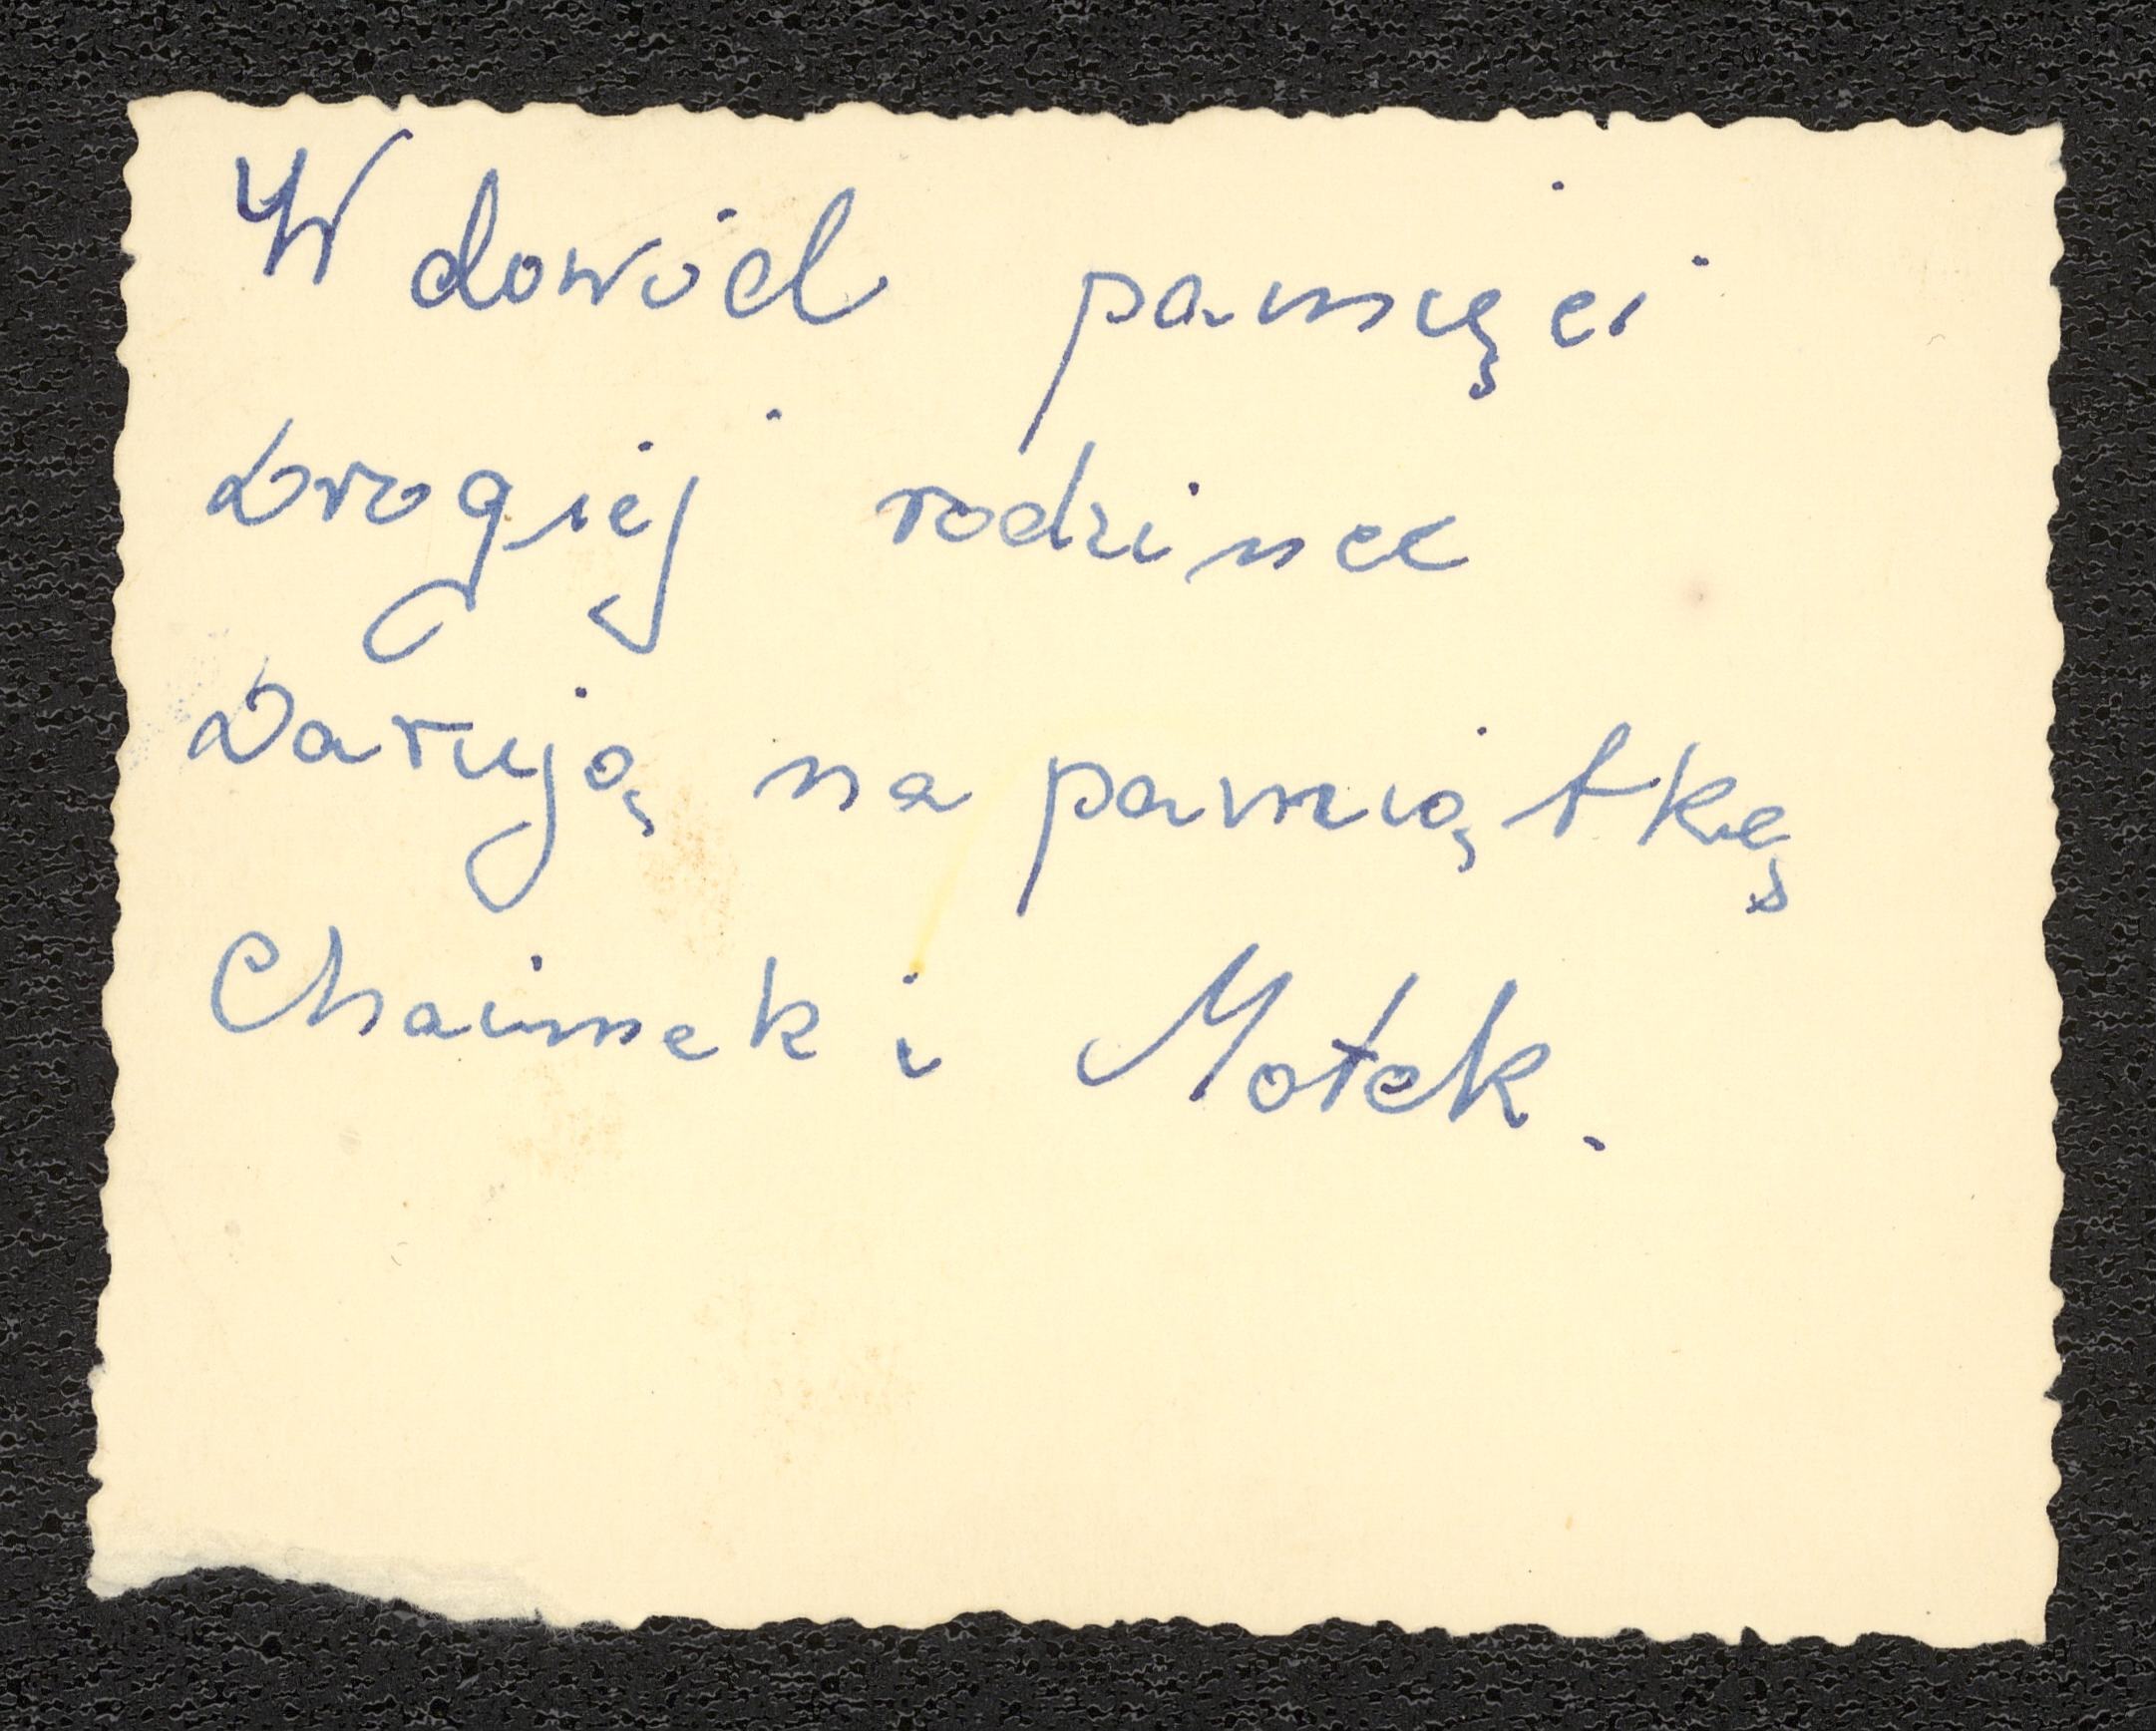 W dowód pamięci
Drogiej rodzince
Darują na pamiątkę
Chaimek i Motek.